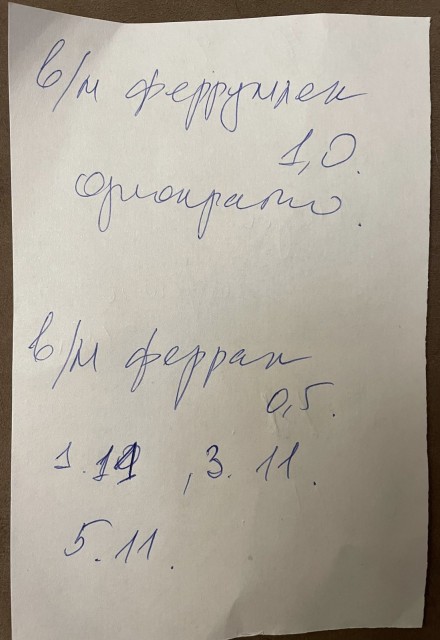 в/м феррумлек
1,0.
однократно.
в/м ферран
0,5.
1.11, 3.11.
5.11.